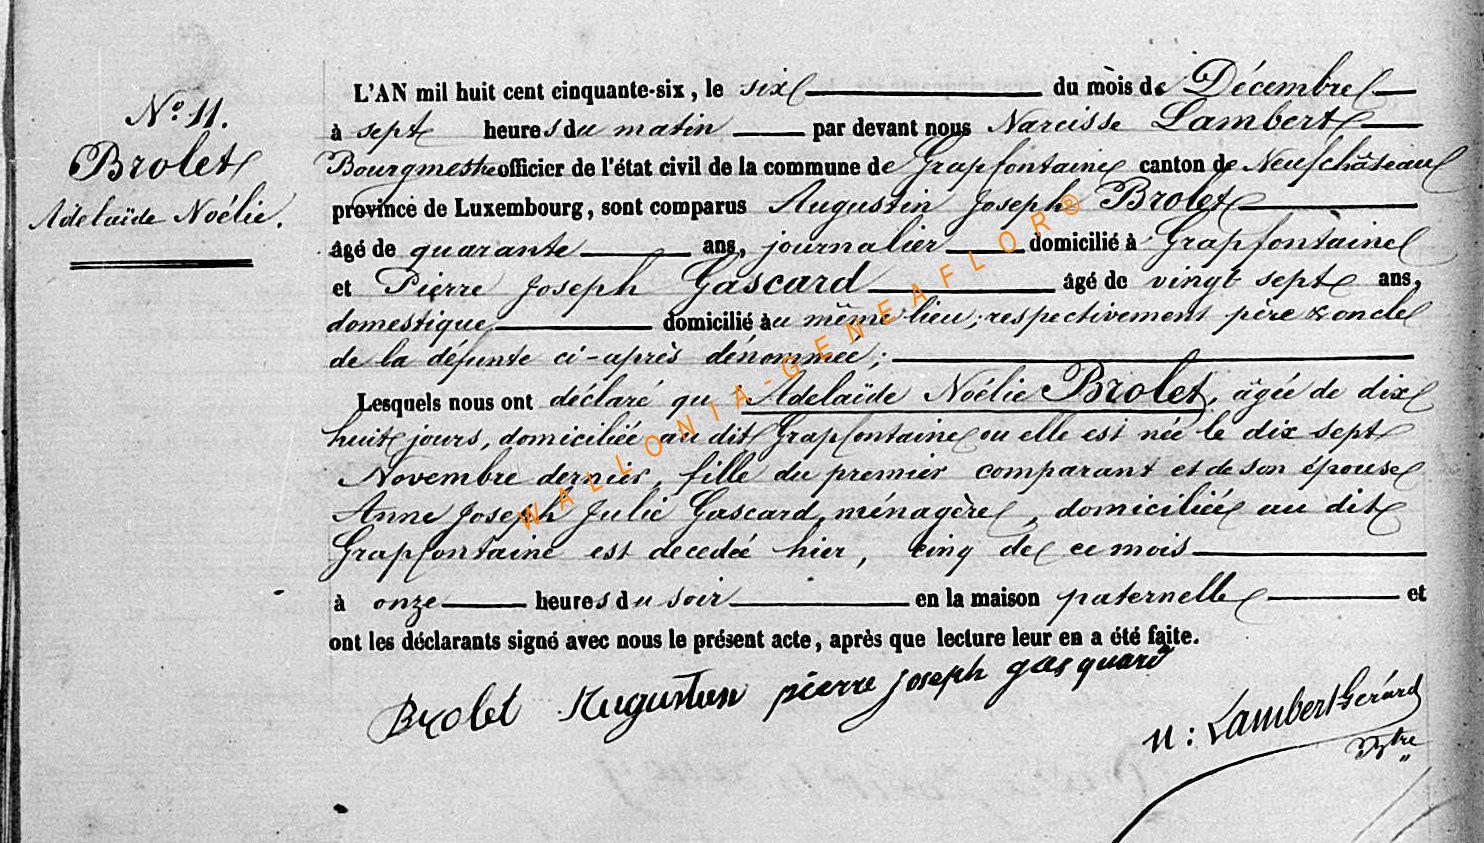 N.º 11.
Brolet
Adelaïde Noélie.
L'AN mil huit cent cinquante-six, le six du mois de Décembre
à sept heures du matin par devant nous Narcisse Lambert
Bourgmestre officier de l'état civil de la commune de Grapfontaine canton de Neufchâteau
province de Luxembourg, sont comparus Augustin Joseph Brolet
âgé de quarante ans, journalier domicilié à Grapfontaine
et Pierre Joseph Gascard âgé de vingt sept ans,
domestique domicilié au même lieu; respectivement père & oncle
de la défunte ci-après dénommée;
Lesquels nous ont déclaré qu'Adelaïde Noélie Brolet, âgée de dix
huit jours, domiciliée au dit Grapfontaine ou elle est née le dix sept
Novembre dernier, fille du premier comparant et de son épouse
Anne Joseph Julie Gascard, ménagère, domiciliée au dit
Grapfontaine est decedée hier, cinq de ce mois
à onze heures du soir en la maison paternelle et
ont les déclarants signé avec nous le présent acte, après que lecture leur en a été faite.
Brolet Augustin pierre joseph gasquard
N: Lambert Gérard
Btre
WALLONIA-GENEAFLOR®